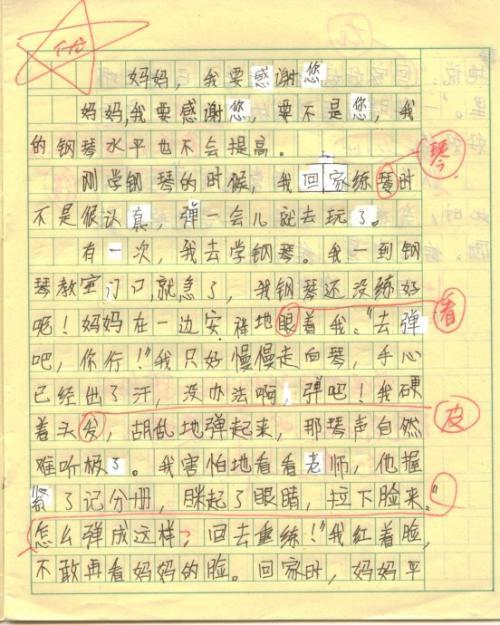 优
妈妈，我要感谢您
妈妈，我要感谢您，要不是您，我
的钢琴水平也不会提高。
刚学钢琴的时候，我回家练琴时
琴
不是很认真，弹一会儿就去玩了。
有一次，我去学钢琴。我一到钢
琴教室门口，就急了，我钢琴还没练好
呢！妈妈在一边安祥地眼着我。“去弹
看
吧，你行！”我只好慢慢走向琴，手心
已经出了汗，没办法啊，弹吧！我硬
着头发，胡乱地弹起来，那琴声自然
皮
难听极了。我害怕地看看老师，他握
紧了记分册，眯起了眼睛，拉下脸来。“
怎么弹成这样？回去重练！”我红着脸，
不敢再看妈妈的脸。回家时，妈妈平